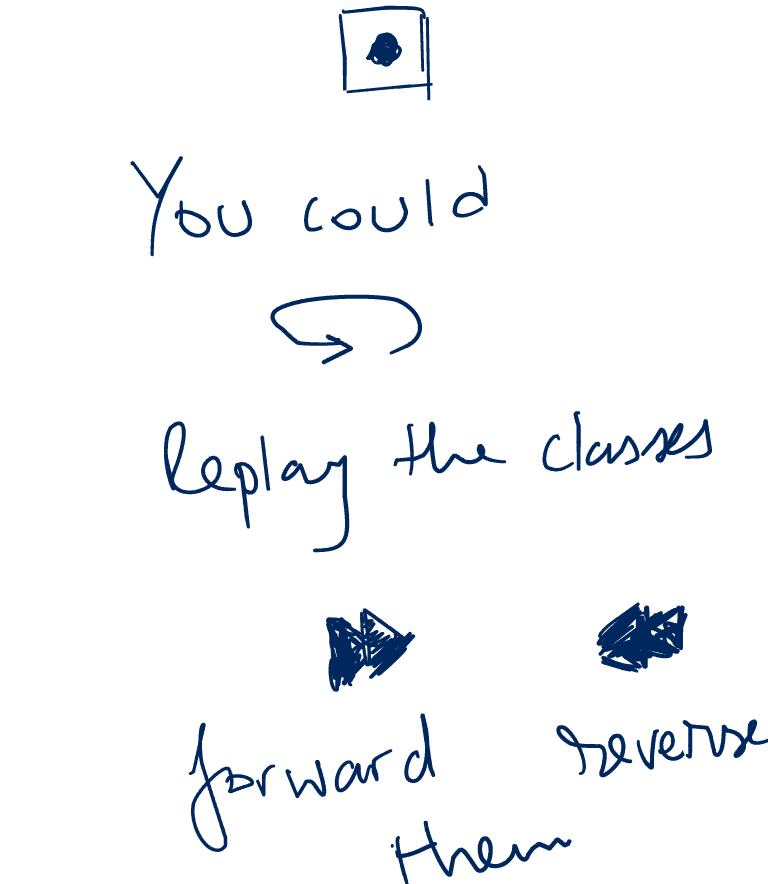 You could
Replay the classes
forward reverse
them